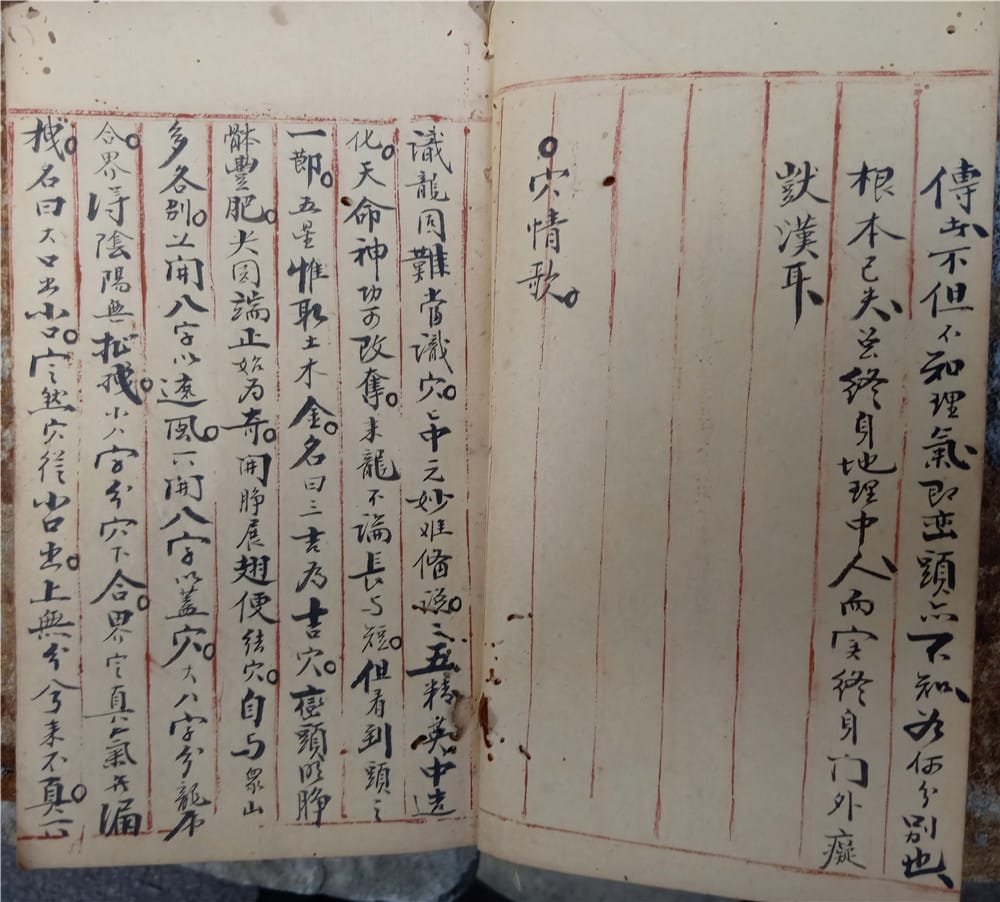 傳书不但不知理氣即峦頭亦不知为何分別也
根本已失总終身地理中人而实終身门外癡
獃漢耳
穴情歌
識龍固難當識穴穴中元妙难俻説二五精英中造
化天命神功可改奪来龍不論長与短但看到頭之
一節五星惟取土木金名曰三吉為吉穴巒頭明净
骵豐肥尖圆端正始为奇開睁展翅便結穴自与眾山
多各别上開八字以遮風下開八字以蓋穴大八字分龍虎
合界淂陰陽無拒戏小八字分穴下合界定真气氣無漏
拽名曰大口出小口定然穴從小口出上無分兮来不真下